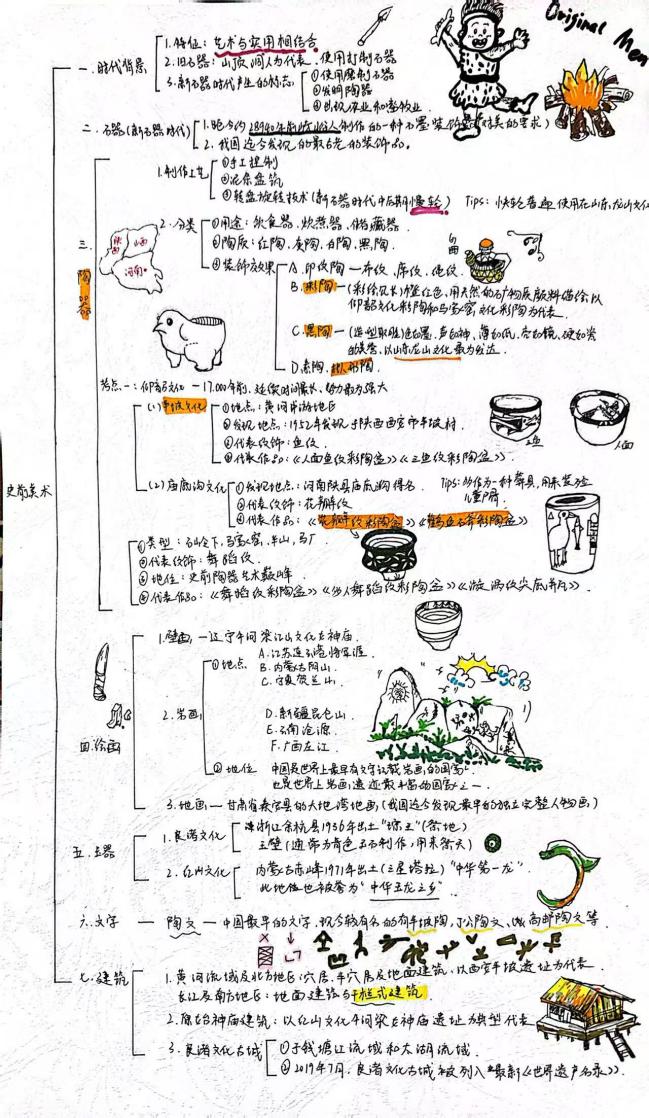 Original Men
史前美术
一.时代背景
1.特征:艺术与实用相结合
2.旧石器:山顶洞人为代表.使用打制石器
3.新石器时代产生的标志
①使用磨制石器
②发明陶器
③出现农业和畜牧业.
二.石器(新石器时代)
2.我国迄今发现的最古老的装饰品.
三.陶器
1.制作工艺
①手工捏制
②泥条盘筑
③转盘旋转技术(新石器时代中后期慢轮)
Tips:快轮普遍使用在山东,龙山文化
2.分类
①用途:饮食器.炊煮器.储藏器.
②陶质:红陶.灰陶.白陶.黑陶.
④装饰效果
A.印纹陶—布纹.席纹.绳纹.
B.彩陶—(彩绘见长)
仰韶文化彩陶和马家窑文化彩陶为代表.
C.黑陶—(造型取胜)色如墨.声如钟.薄如纸.亮如镜.硬如瓷
的美誉.以山东龙山文化最为发达.
D.素陶.拟形陶
陕西
山西
河南
考点一:仰韶文化—17.000年前.延续时间最长.势力最为强大
(1)半坡文化
①地点:黄河中游地区
②发现地点:1952年发现于陕西西安市半坡村.
③代表纹饰:鱼纹.
④代表作品:《人面鱼纹彩陶盆》《三鱼纹彩陶盆》
三鱼
人面
(2)庙底沟文化
①发现地点:河南陕县庙底沟得名.
Tips:
②代表纹饰:花瓣纹
③代表作品:《花瓣纹彩陶盆》《鹳鱼石斧彩陶盆》
①类型:石岭下.马家窑.半山.马厂.
②代表纹饰:舞蹈纹.
③地位:史前陶器艺术巅峰.
④代表作品:《舞蹈纹彩陶盆》《多人舞蹈纹彩陶盆》《漩涡纹尖底瓶》.
四.绘画
1.壁画—辽宁牛河梁红山文化女神庙.
2.岩画
①地点
A.江苏连云港将军崖.
B.内蒙古阴山.
C.宁夏贺兰山.
D.新疆昆仑山.
E.云南沧源.
F.广西左江.
②地位
中国是世界上最早有文字记载岩画的国家.
也是世界上岩画遗迹最丰富的国家之一.
3.地画—甘肃省秦安县的大地湾地画(我国迄今发现最早的独立完整人物画)
五.玉器
1.良渚文化
浙江余杭县1936年出土"琮王"(祭地)
玉璧(通常为青色玉石制作,用来祭天)
2.红山文化
内蒙古赤峰1971年出土(三星塔拉)"中华第一龙".
此地位也被誉为"中华玉龙之乡".
六.文字 — 陶文—中国最早的文字.现今较有名的有半坡陶,丁公陶文、高邮陶文等.
七.建筑
1.黄河流域及北方地区:穴居.半穴居及地面建筑.以西安半坡遗址为代表.
长江及南方地区:地面建筑与干栏式建筑.
2.原始神庙建筑:以红山文化牛河梁女神庙遗址为典型代表
3.良渚文化古城
①于钱塘江流域和太湖流域.
②2019年7月.良渚文化古城被列入最新《世界遗产名录》.